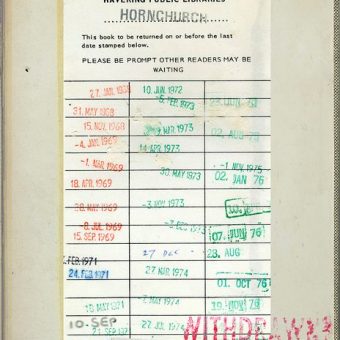 HAVERING PUBLIC LIBRARIES
HORNCHURCH
This book to be returned on or before the last
date stamped below.
PLEASE BE PROMPT OTHER READERS MAY BE
WAITING
27. JAN. 1968
31. MAY 1968
15. NOV. 1968
-4. JAN. 1969
-1. MAR. 1969
18. APR. 1969
28. MAY 1969
-8. JUL 1969
15. SEP. 1969
FEB. 1971
24. FEB 1971
MAY 1971
10. SEP
21. SEP 1971
10. JUN. 1972
-5. FEB 1973
MAR 1973
APR 1973
30. MAY 1973
1973
1973
27 DEC
27 MAR 1974
MAY 1974
27 JUL 1974
76
02. AUG 76
-1. NOV. 1975
02. JAN 76
07. JUN 76
23. AUG
01. OCT 76
76
WITHDRAWN